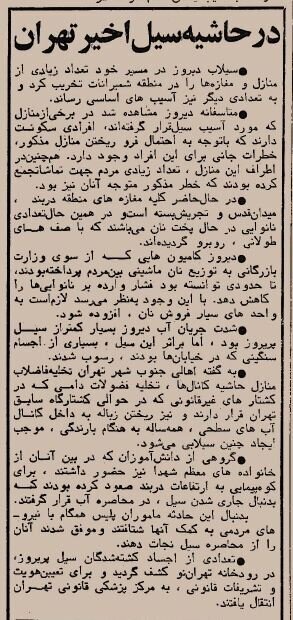 در حاشیه سیل اخیر تهران
●سیلاب دیروز در مسیر خود تعداد زیادی از
منازل و مغازه‌ها را در منطقه شمیرانات تخریب کرد و
به تعدادی دیگر نیز آسیب های اساسی رساند.
●متاسفانه دیروز مشاهده شد در برخی‌ازمنازل
که مورد آسیب سیل‌قرار گرفته‌اند، افرادی سکونت
دارند که باتوجه به احتمال فرو ریختن منازل مذکور،
خطرات جانی برای این افراد وجود دارد. هم‌چنین‌در
اطراف این منازل ، تعداد زیادی مردم جهت تماشاتجمع
کرده بودند که خطر مذکور متوجه آنان نیز بود.
●در حال‌حاضر کلیه مغازه های منطقه دربند ،
میدان‌قدس و تجریش‌بسته است‌و در همین حال‌تعدادی
نانوایی در حال پخت نان می‌باشند که با صف های
طولانی ، روبرو گردیده‌اند.
●دیروز کامیون هایی که از سوی وزارت
بازرگانی به توزیع نان ماشینی بین‌مردم پرداخته‌بودند،
تا حدودی توانسته بود فشار وارده بر نانوایی‌ها را
کاهش دهد. با این وجود به‌نظر می‌رسد لازم‌است به
واحد های سیار فروش نان ، افزوده شود.
●شدت جریان آب دیروز بسیار کمتراز سیل
پریروز بود ، اما براثر این سیل ، بسیاری از اجسام
سنگینی که در خیابان‌ها بودند ، رسوب شدند.
●به گفته اهالی جنوب شهر تهران تخلیه‌فاضلاب
منازل حاشیه کانال‌ها ، تخلیه فضولات دامی که در
کشتار های غیرقانونی که در حوالی کشتارگاه سابق
تهران قرار دارند و نیز ریختن زباله به داخل کانال
آب های سطحی ، همه‌ساله به هنگام بارندگی ، موجب
ایجاد چنین سیلابی می‌شود.
●گروهی از دانش‌آموزان که در بین آنان از
خانواده های معظم شهدا نیز حضور داشتند ، برای
کوهپیمایی به ارتفاعات دربند صعود کرده بودند که
بدنبال جاری شدن سیل ، در محاصره آب قرار گرفتند.
بدنبال این حادثه ماموران پلیس همگام با نیرو-
های مردمی به کمک آنها شتافتند وموفق شدند آنان
را از محاصره سیل نجات دهند.
●تعدادی از اجساد کشته‌شدگان سیل پریروز،
در رودخانه تهران‌نو کشف گردید و برای تعیین‌هویت
و تشریفات قانونی ، به مرکز پزشکی قانونی تهران
انتقال یافتند.